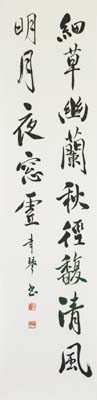 細草幽蘭秋徑馥清風
明月夜窓虛